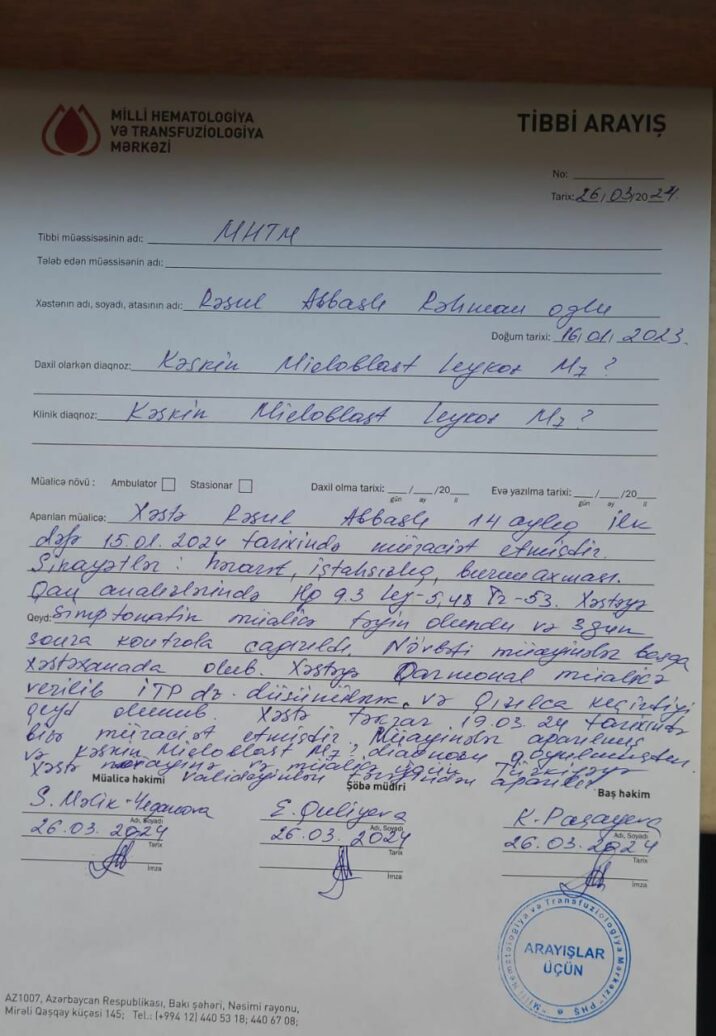 MİLLİ HEMATOLOGİYA
VƏ TRANSFUZİOLOGİYA
MƏRKƏZİ
TİBBİ ARAYIŞ
No:
Tarix: 26/03/2024
Tibbi müəssisəsinin adı: MHTM
Tələb edən müəssisənin adı:
Xəstənin adı, soyadı, atasının adı: Rəsul Abbaslı Rəhman oğlu
Doğum tarixi: 16/01/2023.
Daxil olarkən diaqnoz: Kəskin Mieloblast Leykoz M7?
Klinik diaqnoz: Kəskin Mieloblast Leykoz M7?
Müalicə növü: Ambulator Stasionar Daxil olma tarixi: __/__/20__ Evə yazılma tarixi: __/__/20__
gün ay il gün ay il
Aparılan müalicə: Xəstə Rəsul Abbaslı 14 aylıq ilk
dəfə 15.01.2024 tarixində müraciət etmişdir.
Şikayətlər: hərarət, iştahsızlıq, burun axması.
Qan analizlərində Hg 9.3 Ley-5,48 Tr-53. Xəstəyə
Qeyd: Simptomatik müalicə təyin olundu və 3 gün
sonra kontrola çağırıldı. Növbəti müayinələr başqa
xəstəxanada olub. Xəstəyə Qarmonal müalicə
verilib İTP də düşünülərək və Qızılca keçirtdiyi
qeyd olunub. Xəstə təkrar 19.03 24 tarixində
bizə müraciət etmişdir. Müayinələr aparılmış
və Kəskin Mieloblast M7? diaqnozu qoyulmuşdur.
Xəstə müayinə və müalicə üçün Türkiyəyə
valideynləri tərəfindən aparılır
Müalicə həkimi Şöbə müdiri Baş həkim
S. Məlik-Yeganova E. Quliyeva K. Paşayeva
Adı, Soyadı Adı, Soyadı Adı, Soyadı
26.03.2024 26.03.2024 26.03.2024
Tarix Tarix Tarix
İmza İmza İmza
"Milli Hematologiya və Transfuziologiya Mərkəzi" PHŞ
ARAYIŞLAR
ÜÇÜN
AZ1007, Azərbaycan Respublikası, Bakı şəhəri, Nəsimi rayonu,
Mirəli Qaşqay küçəsi 145; Tel.: (+994 12) 440 53 18; 440 67 08;